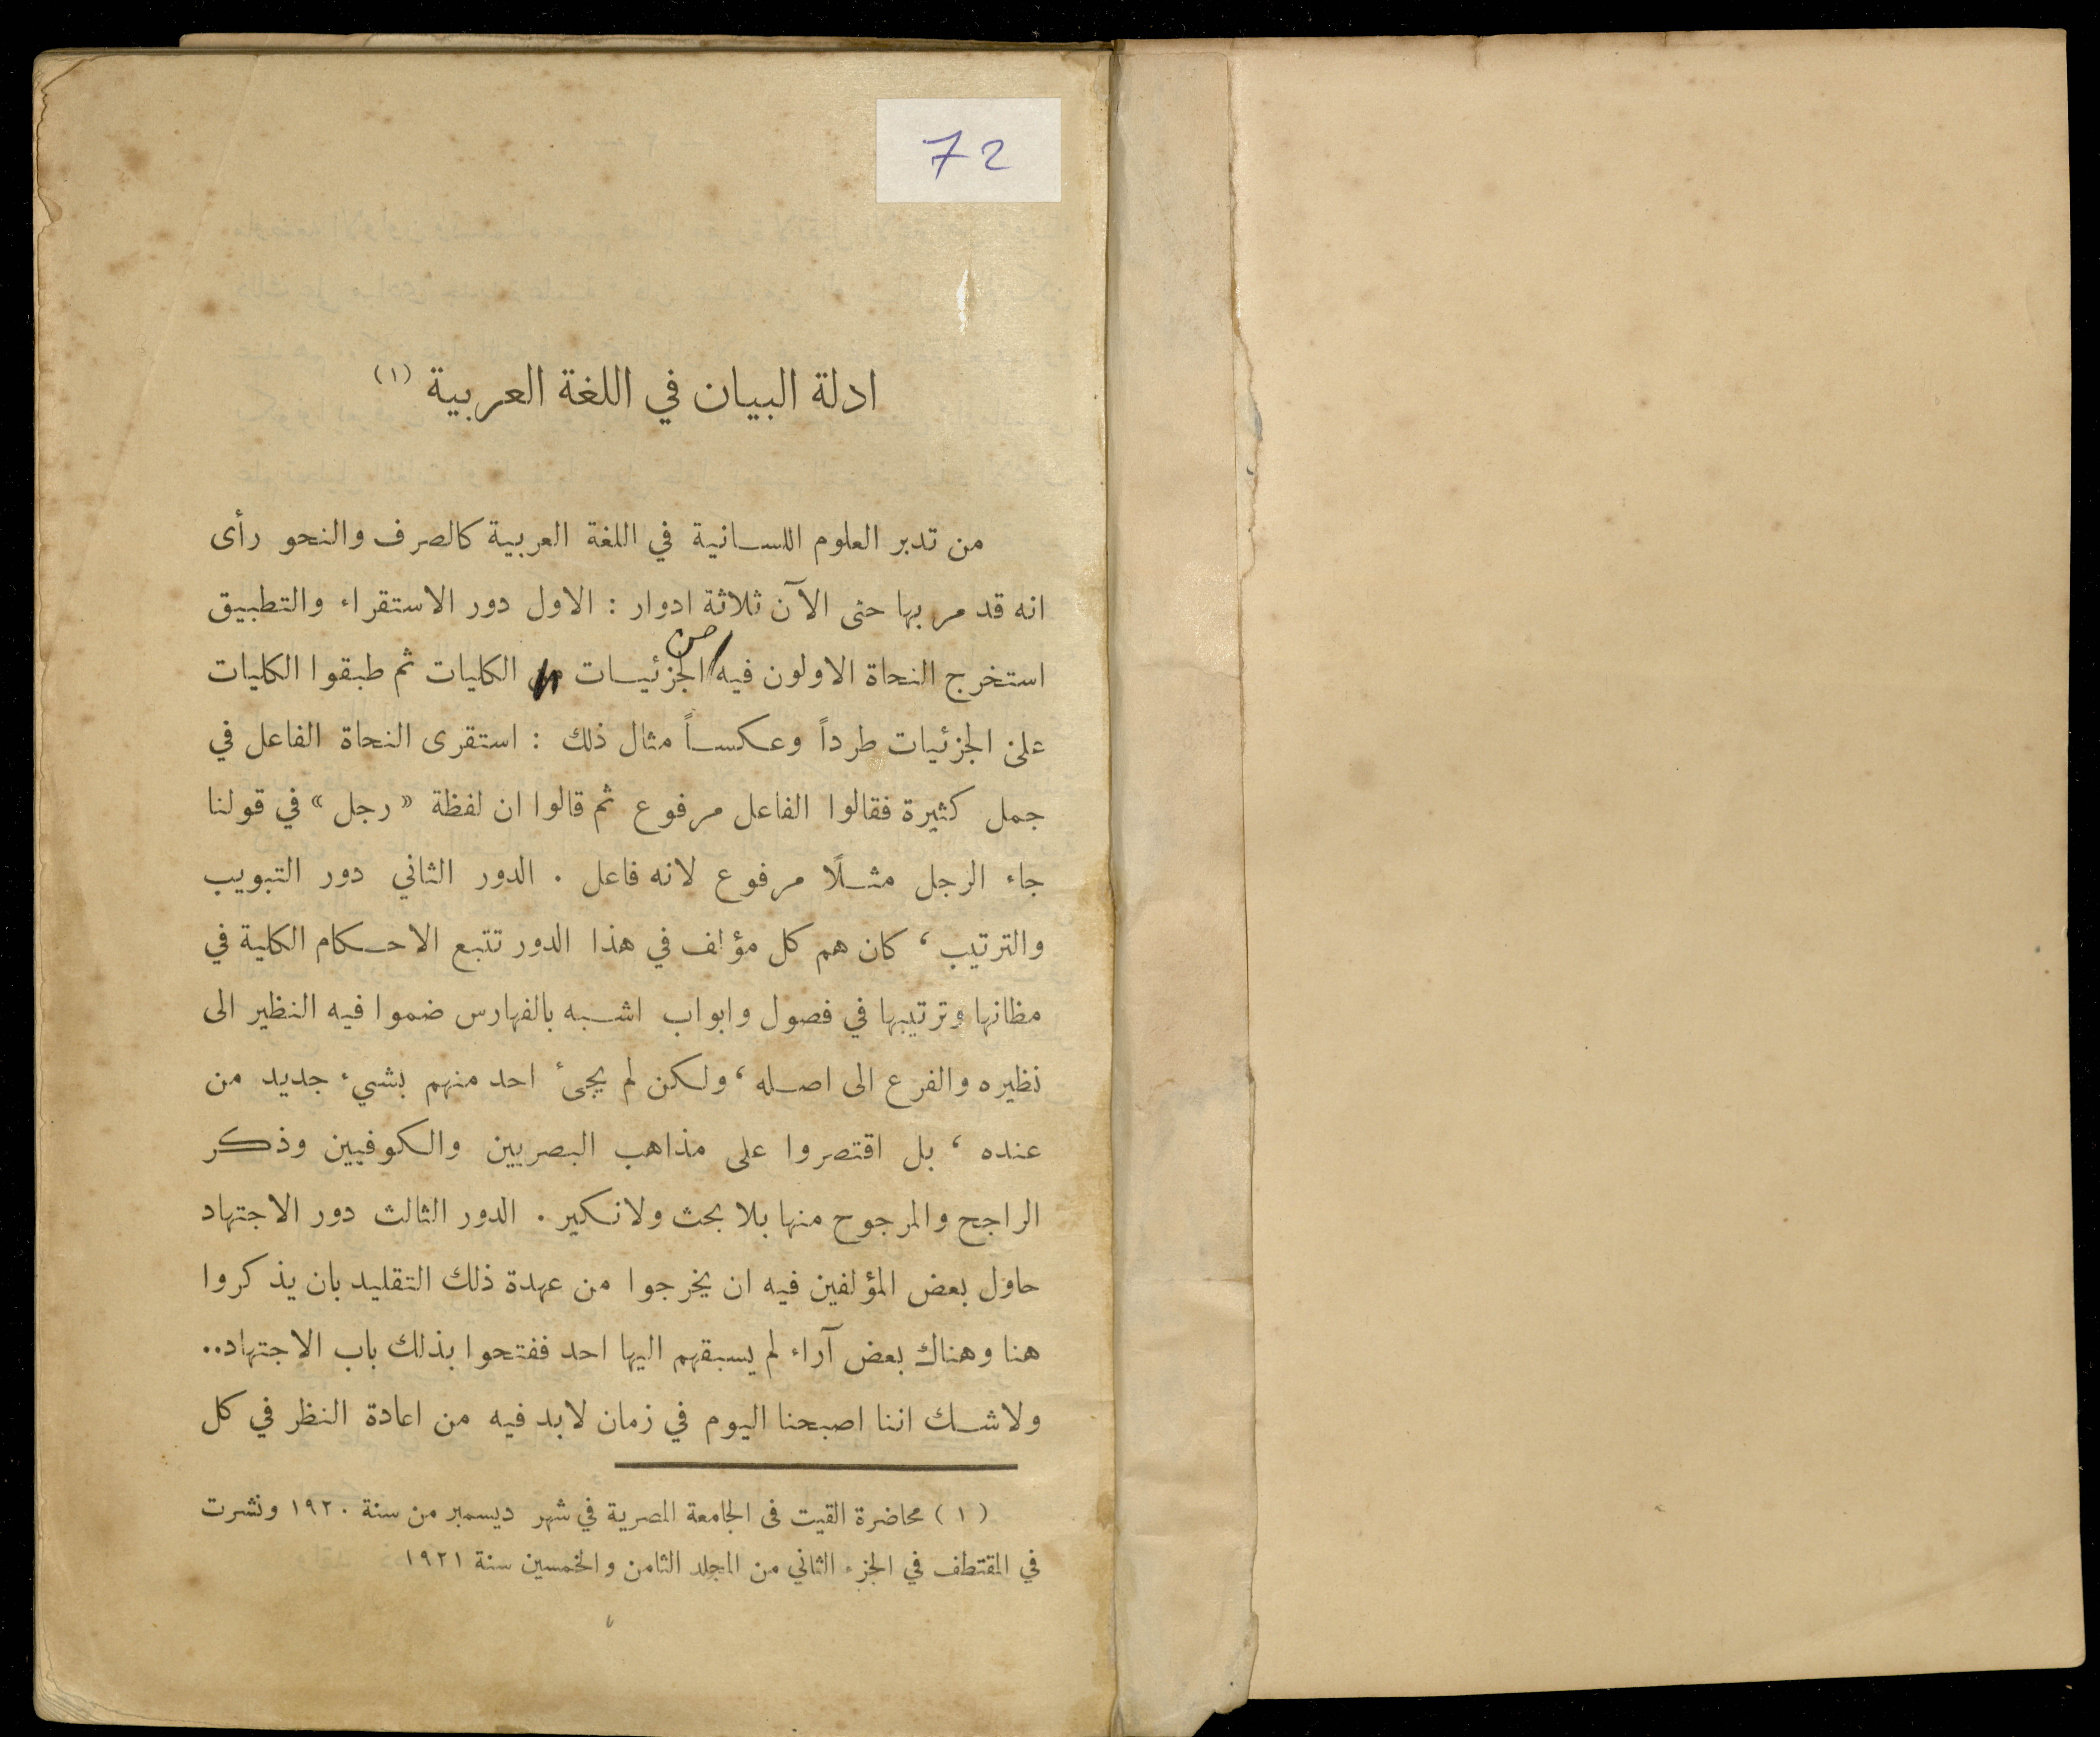 72
ادلة البيان في اللغة العربية (١)
من تدبر العلوم اللسانية في اللغة العربية كالصرف والنحو رأى
انه قد مر بها حتى الآن ثلاثة ادوار : الاول دور الاستقراء والتطبيق
من
استخرج النحاة الاولون فيه الجزئيات من الكليات ثم طبقوا الكليات
على الجزئيات طرداً وعكساً مثال ذلك : استقرى النحاة الفاعل في
جمل كثيرة فقالوا الفاعل مرفوع ثم قالوا ان لفظة « رجل » في قولنا
جاء الرجل مثلاً مرفوع لانه فاعل . الدور الثاني دور التبويب
والترتيب ، كان هم كل مؤلف في هذا الدور تتبع الاحكام الكلية في
مظانها وترتيبها في فصول وابواب اشبه بالفهارس ضموا فيه النظير الى
نظيره والفرع الى اصله ، ولكن لم يجىء احد منهم بشيء جديد من
عنده ، بل اقتصروا على مذاهب البصريين والكوفيين وذكر
الراجح والمرجوح منها بلا بحث ولا نكير . الدور الثالث دور الاجتهاد
حاول بعض المؤلفين فيه ان يخرجوا من عهدة ذلك التقليد بان يذكروا
هنا وهناك بعض آراء لم يسبقهم اليها احد ففتحوا بذلك باب الاجتهاد..
ولا شك اننا اصبحنا اليوم في زمان لا بد فيه من اعادة النظر في كل
( ١ ) محاضرة القيت فى الجامعة المصرية في شهر ديسمبر من سنة ١٩٢٠ ونشرت
في المقتطف في الجزء الثاني من المجلد الثامن والخمسين سنة ١٩٢١